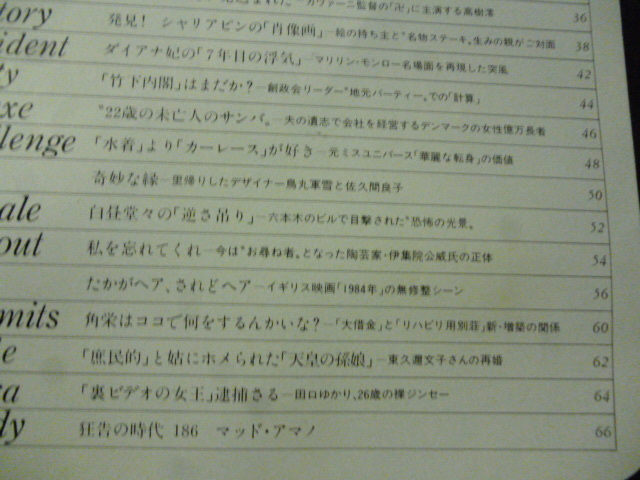 ガヴァーニ監督の「卍」に主演する高樹澪 36
tory 発見! シャリアピンの「肖像画」―絵の持ち主と“名物ステーキ„生みの親がご対面 38
ident ダイアナ妃の「7年目の浮気」―マリリン・モンロー名場面を再現した突風 42
ty 「竹下内閣」はまだか?―創政会リーダー“地元パーティー„での「計算」 44
xe “22歳の未亡人のサンバ„―夫の遺志で会社を経営するデンマークの女性億万長者 46
llenge 「水着」より「カーレース」が好き―元ミスユニバース「華麗な転身」の価値 48
奇妙な縁―里帰りしたデザイナー鳥丸軍雪と佐久間良子 50
ale 白昼堂々の「逆さ吊り」―六本木のビルで目撃された“恐怖の光景„ 52
out 私を忘れてくれ―今は“お尋ね者„となった陶芸家・伊集院公威氏の正体 54
たかがヘア、されどヘア―イギリス映画「1984年」の無修整シーン 56
mits 角栄はココで何をするんかいな?―「大借金」と「リハビリ用別荘」新・増築の関係 60
le 「庶民的」と姑にホメられた「天皇の孫娘」―東久邇文子さんの再婚 62
ra 「裏ビデオの女王」逮捕さる―田口ゆかり、26歳の裸ジンセー 64
dy 狂告の時代 186 マッド・アマノ 66